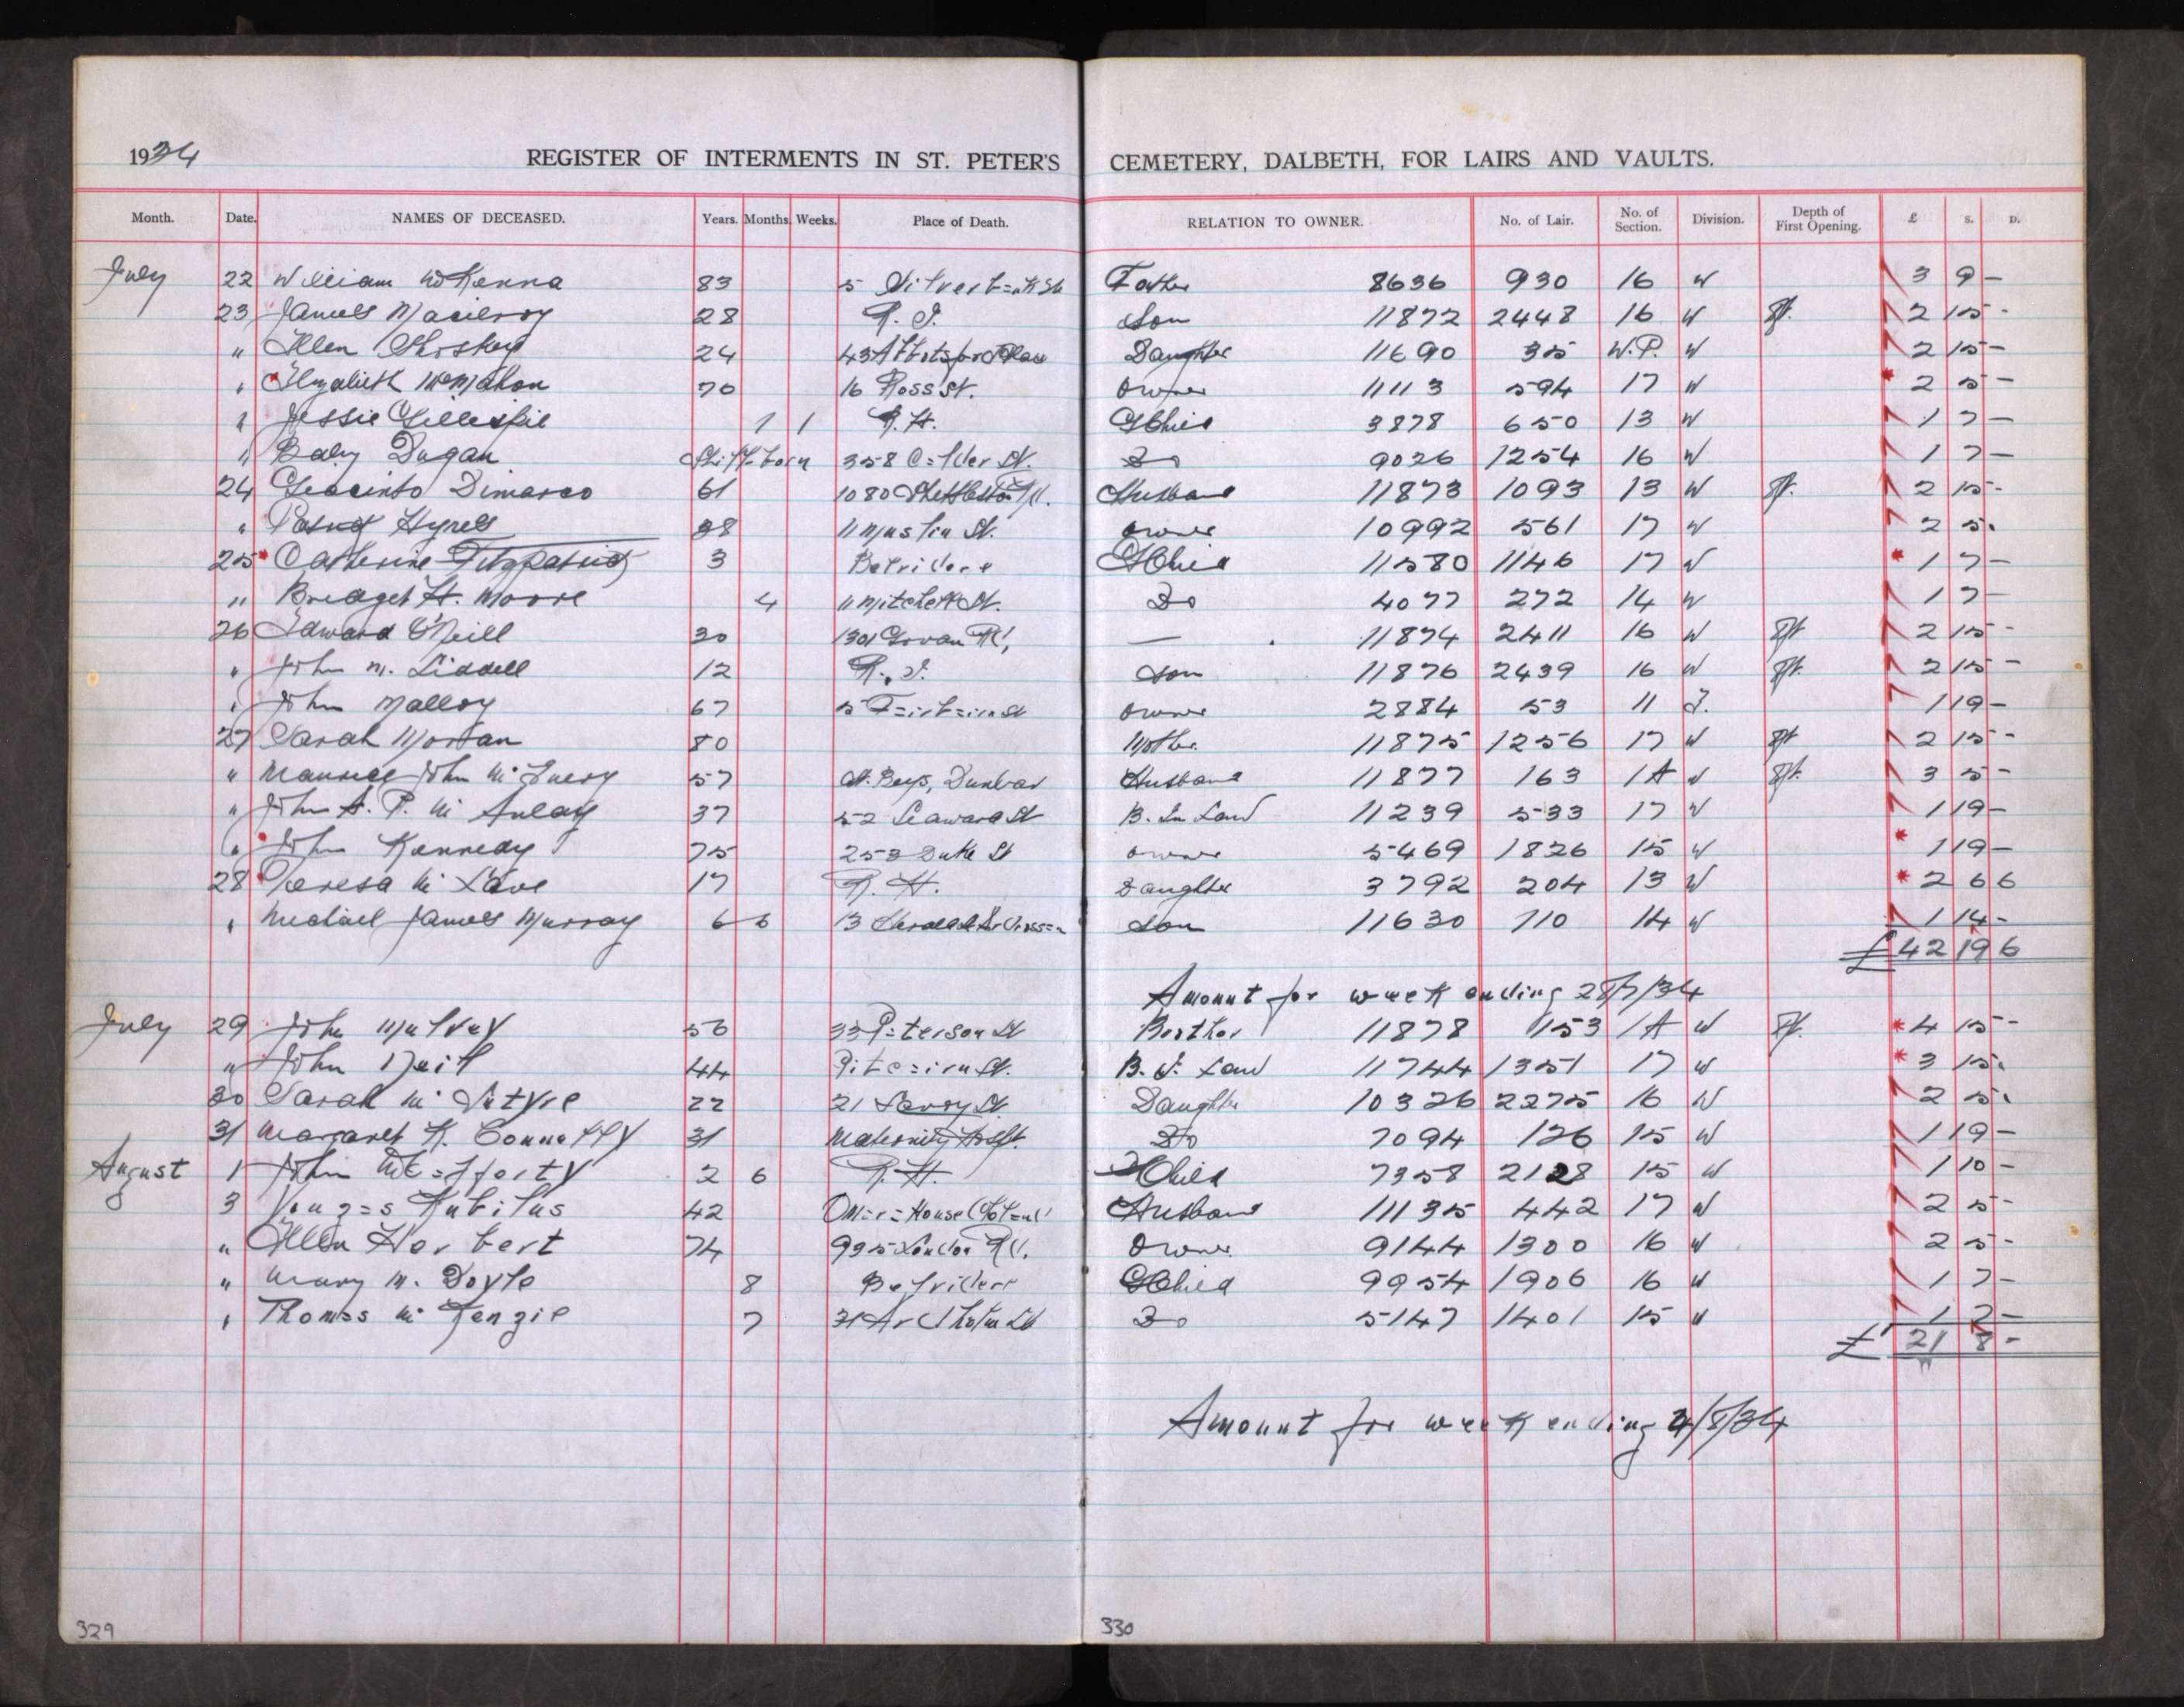 1934 REGISTER OF INTERMENTS IN ST. PETER'S CEMETERY, DALBETH, FOR LAIRS AND VAULTS.
Month. Date. NAMES OF DECEASED. Years. Months. Weeks. Place of Death. RELATION TO OWNER. No. of Lair. No. of Section. Division. Depth of First Opening. £ S. D.
July 22 William McKenna 83 5 Silverbank St Father 8636 930 16 W 3 9 -
23 James Macilroy 28 R. I. Son 11872 2448 16 W 8ft. 2 15 -
" Ellen 24 43 Abbotsford Place Daughter 11690 35 W.P. W 2 15 -
" Elizabeth McMahon 70 16 Ross St. Owner 11113 594 17 W 2 5 -
" Jessie Gillespie 1 1 R. H. GChild 3878 650 13 W 1 7 -
" Baby Dugan Still-born 358 Calder St. Do 9026 1254 16 W 1 7 -
24 Giacinto Dimarco 61 1080 Shettleston Rd. Husband 11873 1093 13 W 8ft. 2 15 -
" Hynes 11 Muslin St. Owner 10992 561 17 W 2 5 .
25 Catherine Fitzpatrick 3 Belvidere GChild 11580 1146 17 W 1 7 -
" Bridget H. Moore 4 11 Mitchell St. Do 4077 272 14 W 1 7 -
26 Edward O'Neill 30 1301 Govan Rd, — 11874 2411 16 W 8ft 2 15 -
" John M. Liddell 12 R. I. Son 11876 2439 16 W 8ft. 2 15 -
" John Malloy 67 5 Fairbairn St Owner 2884 53 11 1 19 -
27 Sarah Morgan 80 Mother. 11875 1256 17 W 8ft 2 15 -
" Maurice John 57 Dunbar Husband 11877 163 1A W 8ft. 3 5 -
" John A. P. McAulay 37 52 Seaward St B. In Law 11239 533 17 W 1 19 -
" John Kennedy 75 253 Duke St Owner 5469 1826 15 W 1 19 -
28 Teresa McLave 17 R. H. Daughter 3792 204 13 W 2 6 6
" Michael James Murray 6 6 13 Son 11630 710 14 W 1 14 -
£42 19 6
Amount for week ending 28/7/34
July 29 John Mulvey 56 33 Paterson St Brother 11878 153 1A W 8ft. 4 15 -
" John 44 B. I. Law 11744 1351 17 W 3 15 .
30 Sarah McIntyre 22 21 Savoy St Daughter 10326 2275 16 W 2 5 .
31 Margaret K. Connolly 31 Maternity Hospt. Do 7094 126 15 W 1 19 -
August 1 John McCafferty 2 6 R. H. Child 7358 2128 15 W 1 10 -
3 Kubilus 42 House Husband 11135 442 17 W 2 5 -
" Ellen Herbert 74 995 London Rd. Owner 9144 1300 16 W 2 5 -
" Mary M. Doyle 8 Belvidere GChild 9954 1906 16 W 1 7 -
" Thomas McKenzie 7 31 Ardholm St Do 5147 1401 15 W 1 7 -
£ 21 8 -
Amount for week ending 4/8/34
329 330